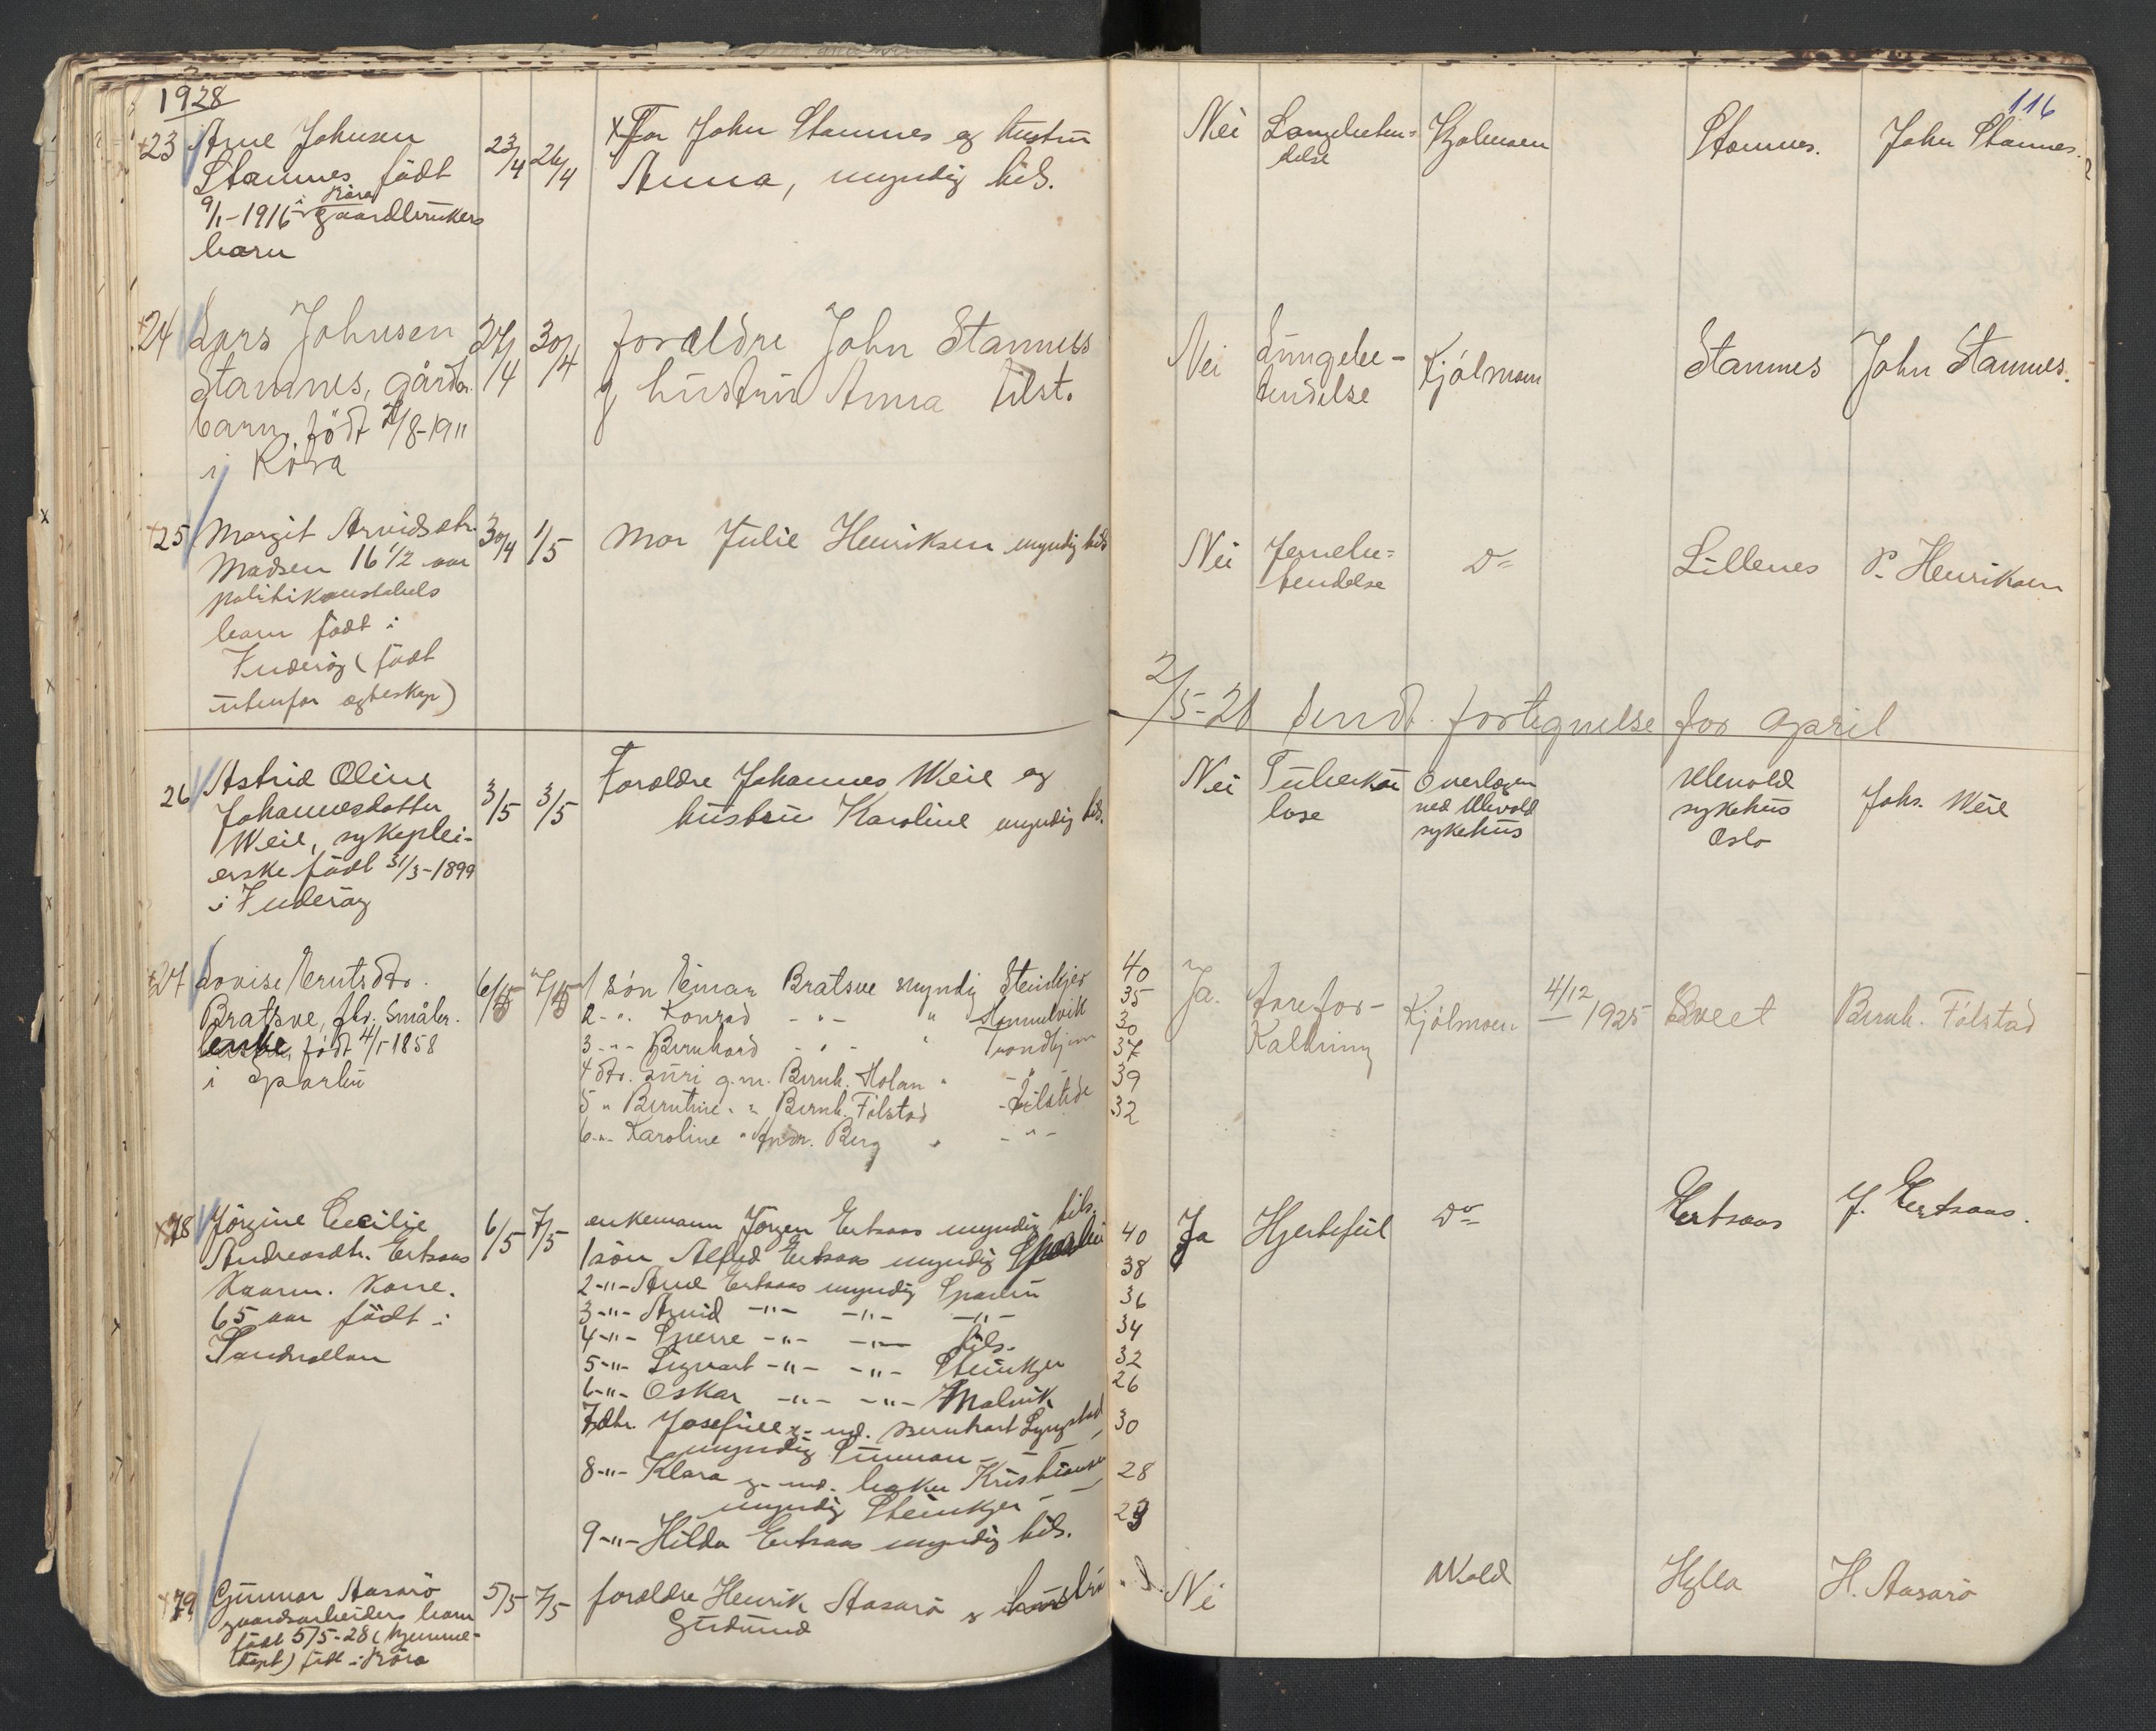 1928
116
23 Arne Johnsen
Stamnes født
9/1-1916 i Röra gaardbrukers
barn
23/4 26/4
Far John Stamnes og hustru
Anna, myndig tils.
Nei
Kjølmoen
Stamnes.
John Stamnes.
24 Lars Johnsen
Stamnes, gårdbr.
barn, født /8-1911
i Röra
27/4 30/4
foreldre John Stamnes
og hustru Anna tilst.
Nei
Lungebe-
tendelse
Kjølmoen
Stamnes
John Stamnes.
25 Margit Arvidsdtr.
Madsen 16 1/2 aar
politikonstabels
barn født i
Inderöy (født
utenfor egteskap)
30/4 1/5
Mor Julie Henriksen myndig tils
Nei
betendelse
Do
Lillenes
P. Henriksen
2/5-28 sendt fortegnelse for april
26 Astrid Oline
Johannesdatter
Weie, sykeplei-
erske født 31/3-1899
i Inderöy
3/5 3/5
Foreldre Johannes Weie og
hustru Karoline myndig tils.
Nei
Tuberku
lose
Overlegen
ved Ullevold
sykehus
Ullevold
sykehus
Oslo
Johs. Weie
27 Lovise Berntsdtr.
Bratsve, fhv. småbr.
enke, født 4/1 1858
i Sparbu
6/5 7/5
1 sön Einar Bratsve myndig Steinkjer 40
2 -"- Konrad -"- " 35
3 -"- Bernhard -"- " Trondhjem 30
4 dtr. Guri g.m. Bernh. Holan " -"- 37
5 " Berntine " " Bernh. Fölstad - tilstede 39
6 -"- Karoline " Andr. Berg " -"- 32
Ja.
Årefor-
kalkning
Kjølmoen
4/12 1925
Sveet
Bernh. Fölstad
28 Jörgine Cecilie
Andreasdtr. Ertsaas
Kaarm. Kone.
65 aar født i
Sandvollan
6/5 7/5
enkemann Jörgen Ertsaas myndig tils.
1 sön Alfred Ertsaas myndig Sparbu 40
2 -"- Arne Ertsaas myndig Sparbu 38
3 -"- Arvid -"- -"- -"- 36
4 -"- Sverre -"- -"- tils. 34
5 -"- Sigvart -"- -"- Steinkjer 32
6 -"- Oskar -"- -"- Malvik 26
7 dtr. Josefine g. m. Bernhart Lyngstad 30
myndig Sunnan
8 -"- Klara g. m. Haken Kristiansen 28
myndig Steinkjer
9 -"- Hilda Ertsaas myndig tils.
Ja
Hjertefeil
Do
Ertsaas
J. Ertsaas.
29 Gunnar Aasarö
gaardsarbeiders barn
født 5/5-28 (hjemme-
döpt) født i Röra
5/5 7/5
foreldre Henrik Aasarö og hustru
Gudrund
Nei
Wold
Hylla
H. Aasarö